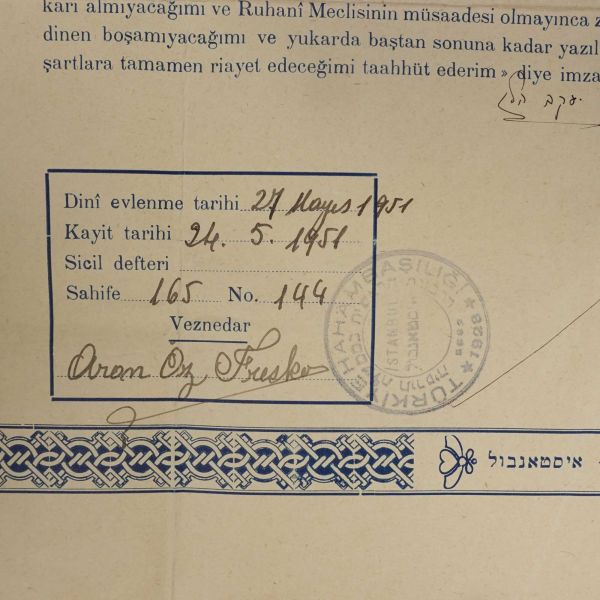 karı almıyacağımı ve Ruhanî Meclisinin müsaadesi olmayınca
dinen boşamıyacağımı ve yukarda baştan sonuna kadar yazıl
şartlara tamamen riayet edeceğimi taahhüt ederim» diye imza
יעקב
Dinî evlenme tarihi 27 Mayıs 1951
Kayit tarihi 24. 5. 1951
Sicil defteri
Sahife 165 No. 144
Veznedar
Aron Öz Fresko
TÜRKİYE HAHAMBAŞILIĞI
* 1928 *
İSTANBUL
איסטאנבול